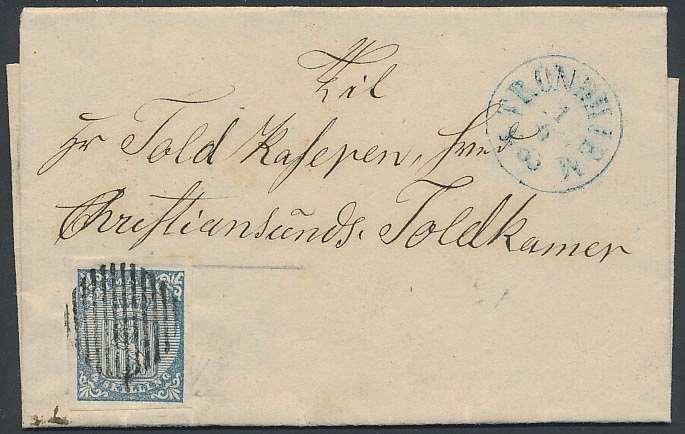 Til
Hr Told Kasseren, hved
Christiansunds. Toldkamer
TRONDHJEM
1
8
4 SKILLING